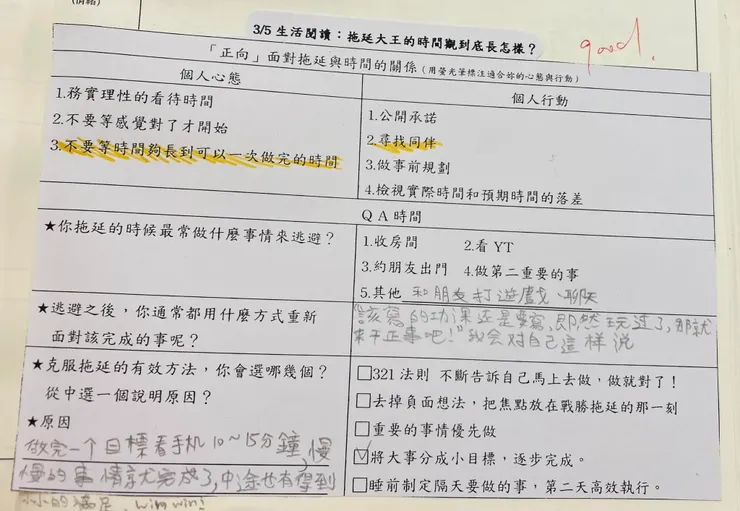 (情緒)
3/5 生活閱讀：拖延大王的時間觀到底長怎樣？
good.
「正向」面對拖延與時間的關係（用螢光筆標注適合妳的心態與行動）
個人心態
1.務實理性的看待時間
2.不要等感覺對了才開始
3.不要等時間夠長到可以一次做完的時間
個人行動
1.公開承諾
2.尋找同伴
3.做事前規劃
4.檢視實際時間和預期時間的落差
QA 時間
★你拖延的時候最常做什麼事情來逃避？
1.收房間 2.看 YT
3.約朋友出門 4.做第二重要的事
5.其他 和朋友打遊戲、聊天
★逃避之後，你通常都用什麼方式重新
面對該完成的事呢？
"該寫的功课还是要寫，即然玩过了，那就
來干正事吧！"我会对自己這样说
★克服拖延的有效方法，你會選哪幾個？
從中選一個說明原因？
★原因
做完一个目標看手机10~15分鐘，慢
慢的事情就完成了，中途也有得到
小小的滿足，win win!
□321 法則 不斷告訴自己馬上去做，做就對了！
□去掉負面想法，把焦點放在戰勝拖延的那一刻
□重要的事情優先做
☑將大事分成小目標，逐步完成。
□睡前制定隔天要做的事，第二天高效執行。